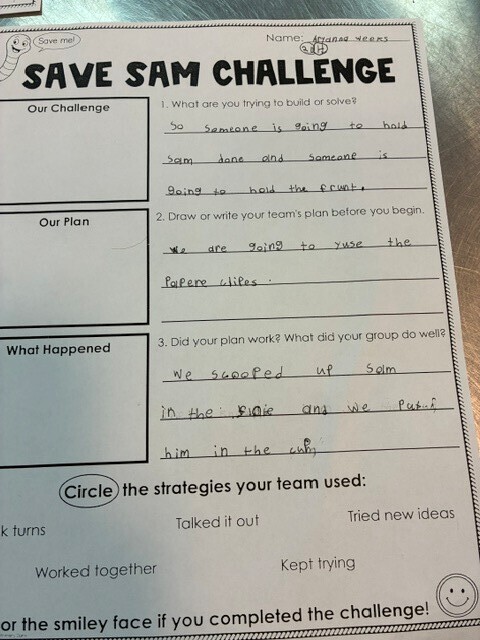 Save me!
Name: Aryanna Weeks
204
SAVE SAM CHALLENGE
Our Challenge
1. What are you trying to build or solve?
So someone is going to hold
Sam dane and someone is
going to hold the frunt.
Our Plan
2. Draw or write your team's plan before you begin.
We are going to yuse the
Papere clipes.
What Happened
3. Did your plan work? What did your group do well?
We scooped up Sam
in the and we
him in the
Circle the strategies your team used:
k turns
Talked it out
Tried new ideas
Worked together
Kept trying
or the smiley face if you completed the challenge!